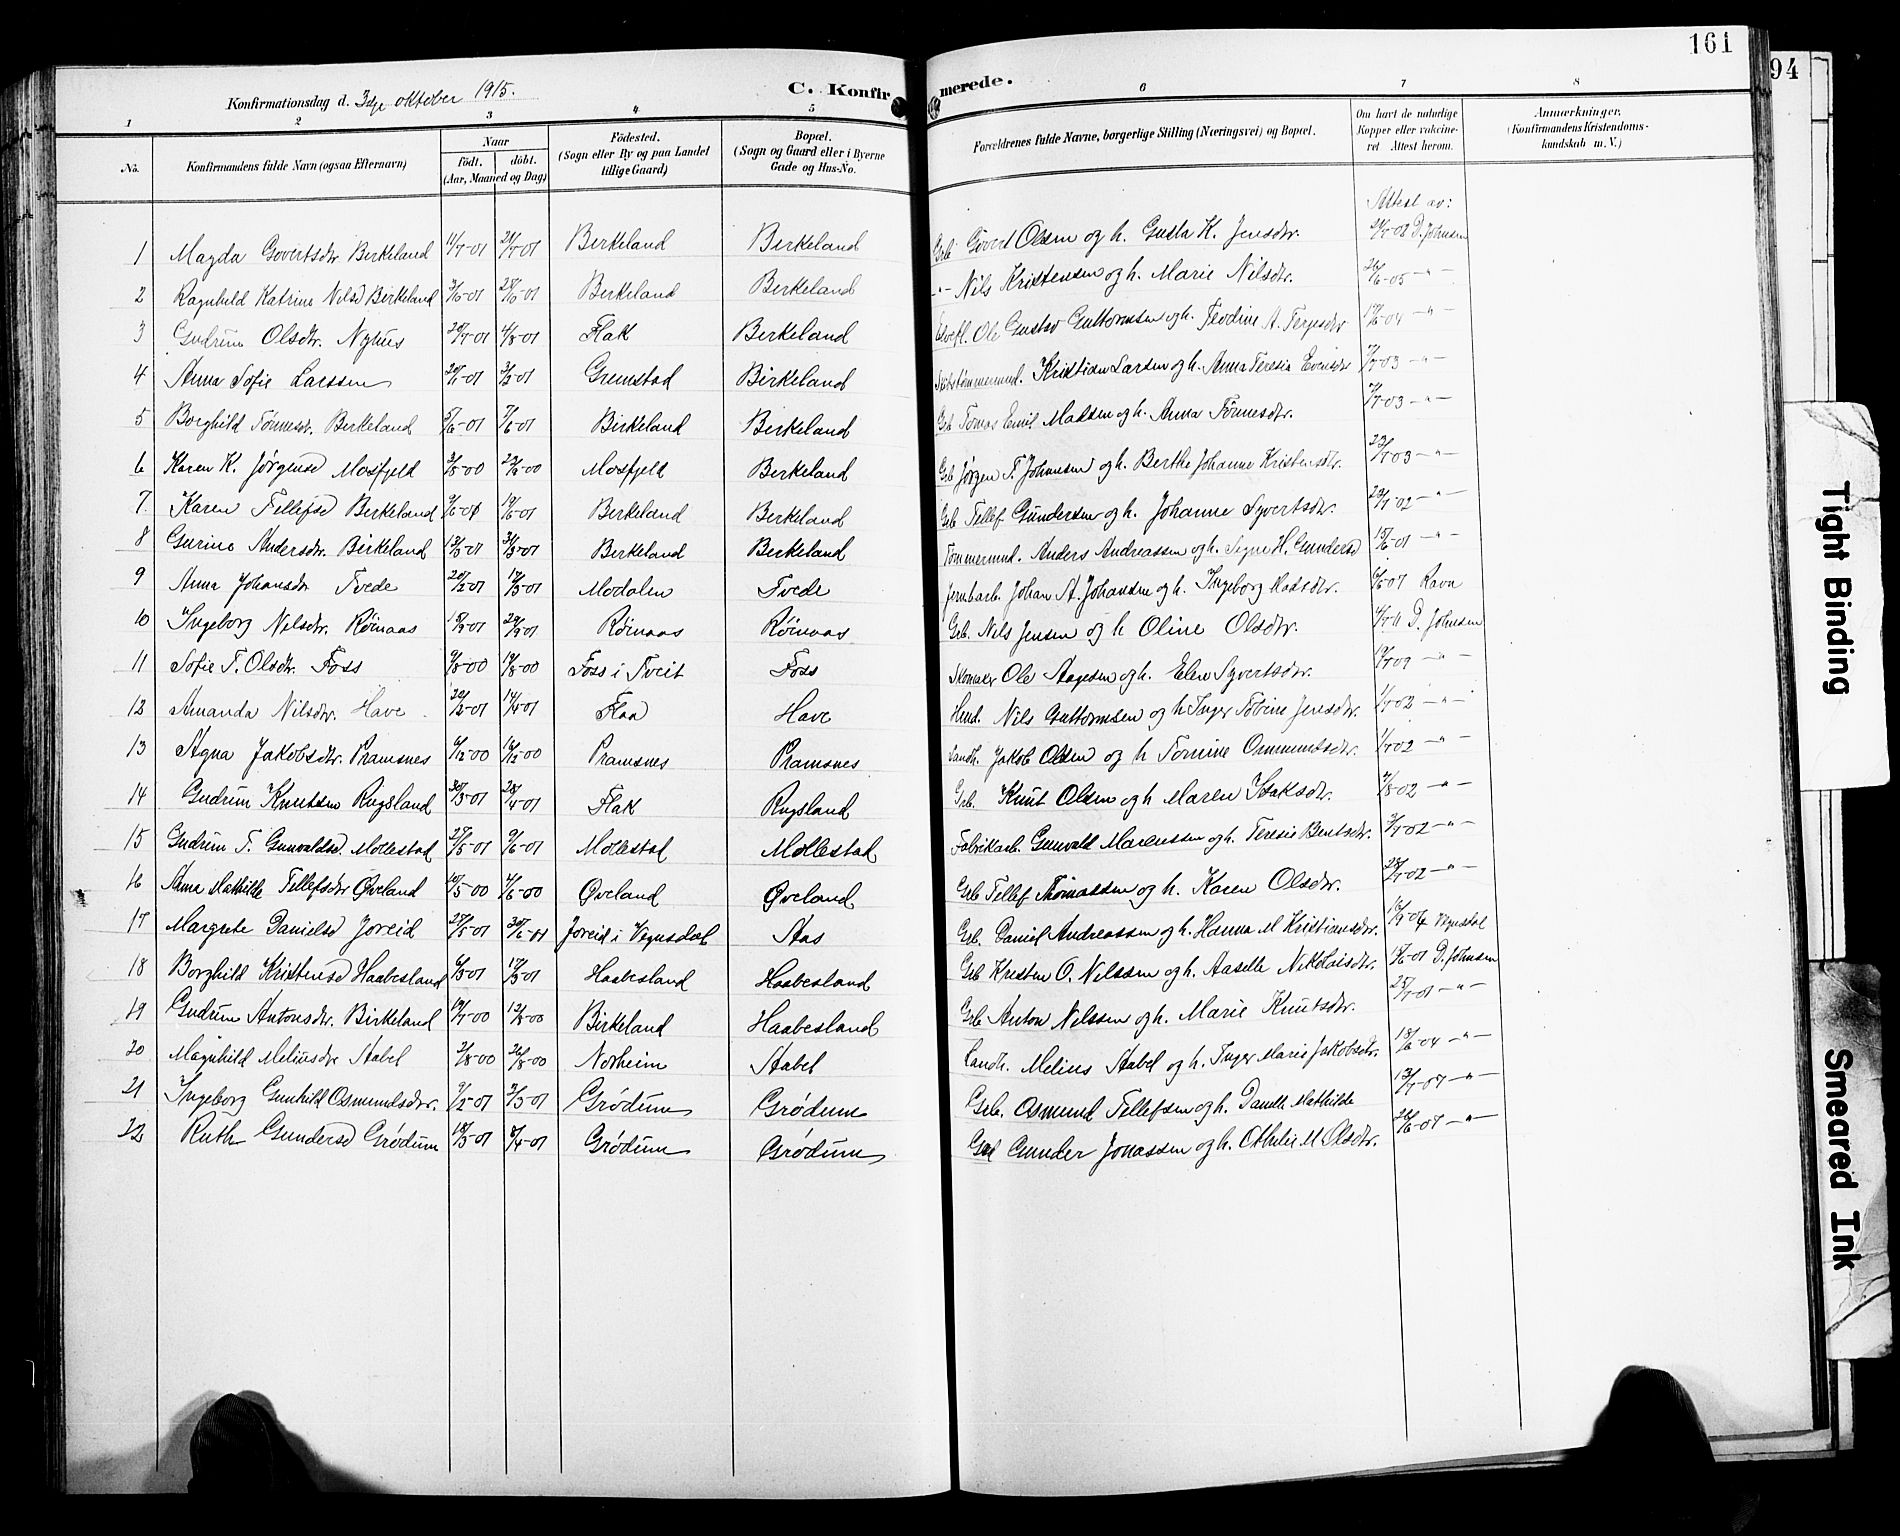 161
94
Konfirmationsdag d. 3dje oktober 1915.
C. Konfirmerede.
1 2 3 4 5 6 7 8
No. Konfirmandens fulde Navn (ogsaa Efternavn) Naar födt. döbt. (Aar, Maaned og Dag) Födested. (Sogn eller By og paa Landet tillige Gaard) Bopæl. (Sogn og Gaard eller i Byerne Gade og Hus-No. Forældrenes fulde Navne, borgerlige Stilling (Næringsvei) og Bopæl. Om havt de naturlige Kopper eller vaccineret. Attest herom. Anmærkninger. (Konfirmandens Kristendomskundskab m. V.)
Attest av:
1 Magda Govertsdtr. Birkeland 11/7-01 21/7-01 Birkeland Birkeland Grb. Govert Olsen og h. Gusta K. Jensdtr. D. Johnsen
2 Ragnhild Katrine Nilsd Birkeland 3/6-01 Birkeland Birkeland -"- Nils Kristensen og h. Marie Nilsdtr. 26/6-05 -"-
3 Gudrun Olsdtr. Nyhus 20/7-01 4/8-01 Flak Birkeland Ole Gustav Guttormsen og h. Teodine A. Terjesdtr 17/6-04 -"-
4 Anna Sofie Larssen Grimstad Birkeland Kristian Larsen og h. Anna Teresia Evensdr -"-
5 Borghild Tönnesdr. Birkeland 5/6-01 7/6-01 Birkeland Birkeland Grb Tomas Emil Madsen og h. Anna Tönnesdtr. -"-
6 Karen K. Jørgensd Mosfjeld 3/8-00 Mosfjeld Birkeland Grb Jørgen T. Johnsen og h. Berthe Johanne Kristensdtr. 23/7-03 -"-
7. Karen Tellefsd Birkeland 9/6-01 19/6-01 Birkeland Birkeland Grb Tellef Gundersen og h. Johanne Syvertsdtr. 29/7-02 -"-
8 Gurine Andersdtr. Birkeland 13/3-01 31/3-01 Birkeland Birkeland Tømmermnd. Anders Andreassen og h. Signe H. Gundersd 15/6-01 -"-
9 Anna Johansdtr Tvede 20/2-01 17/3-01 Modalen Tvede Jernbarb. Johan A. Johansen og h. Ingeborg Madsdtr. 6/6-07 Ravn
10 Ingeborg Nilsdtr. Røinaas Røinaas Røinaas Grb. Nils Jensen og h Oline Olsdtr. 4/7-11 D. Johnsen
11 Sofie T. Olsdtr. Foss 9/8-00 19/8-00 Foss i Tveit Foss Skomaker Ole Aagesen og h. Elen Syvertsdtr. -"-
12 Amanda Nilsdtr. Have 22/2-01 14/4-01 Flaa Have Nils Guttormsen og h Inger Tobine Jensdtr. 1/7-02 -"-
13 Agna Jakobsdtr. Pramsnes 6/12-00 Pramsnes Pramsnes Landh. Jakob Olsen og h Tomine Ommundsdtr. 1/7-02 -"-
14 Gudrun Knutsen Rugsland 30/3-01 28/4-01 Flak Rugsland Grb. Knut Olsen og h Maren Isaksdtr. -"-
15 Gudrun T. Gunvaldsd. Mollestad 27/5-01 9/6-01 Mollestad Mollestad Fabrikarb. Gunvald Marenssen og h. Teresie Bentsdtr. -"-
16 Anna Mathilde Tellefsdtr Øveland Øveland Øveland Grb Tellef Thomassen og h. Karen Olsdtr. 28/7-02 -"-
17 Margrete Danielsd Joreid 28/5-01 30/6-01 Joreid i Vegusdal Aas Grb. Daniel Andreassen og h. Hanna M Kristiansdtr.
18 Borghild Kristensd Haabesland 6/3-01 17/3-01 Haabesland Haabesland Grb Kresten O. Nilssen og h. Aaselle Nikolaisdtr. D. Johnsen
19 Gudrun Antonsdtr. Birkeland 19/7-00 12/8-00 Birkeland Haabesland Grb Anton Nilssen og h. Marie Knutsdtr. 25/7-01 -"-
20 Magnhild Meliusdtr Stabel 2/8-00 26/8-00 Norheim Stabel Landh. Melius Stabel og h. Inger Marie Jakobsdtr. 18/6-04 -"-
21 Ingeborg Gunhild Osmundsdtr. 9/2-01 3/3-01 Grödum Grödum Grb. Osmund Tellefsen og h. Danelle Mathilde 13/7-07 -"-
22 Ruth Gundersd Grödum 18/3-01 8/4-01 Grödum Grödum Grb Gunder Jonassen og h. Othilie M Olsdtr. 26/6-07 -"-
Tight Binding
Smeared Ink